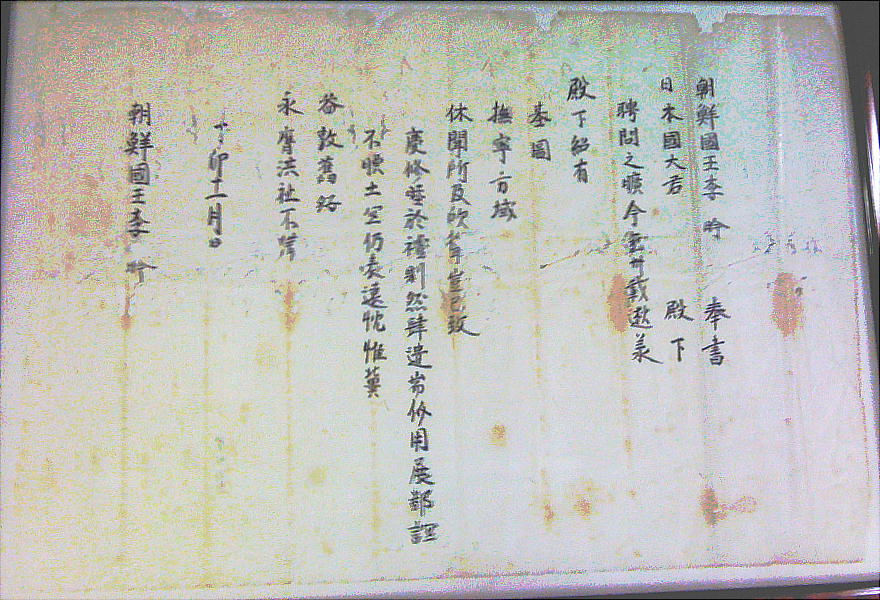 朝鮮國王李 昑 奉書
日本國大君 殿下
聘問之曠今 卅載
殿下紹有
基圖
撫寧方域
休聞所及歆聳豈已致
慶修睦於禮則然肆遣耑价用展鄙
不腆土宜仍表遠忱惟冀
益敦舊好
永膺洪祉不備
丁卯十一月 日
朝鮮國王李 昑